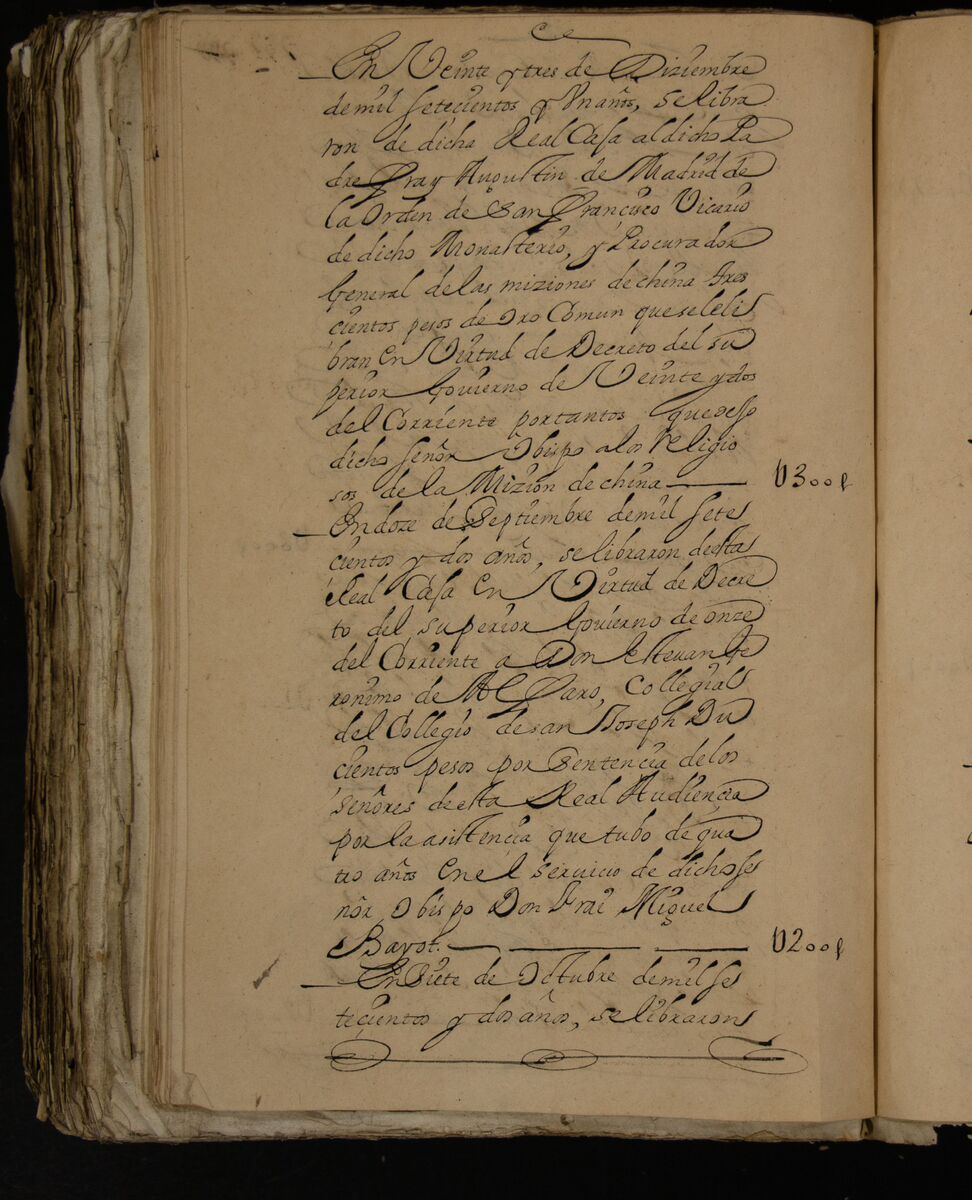 En Veinte y tres de Diziembre
de mil setecientos y Un años, se libra
ron de dicha Real Casa al dicho Pa
dre fray Augustin de Madrid de
la Orden de San francisco Vicario
de dicho Monasterio, y Procurador
General de las miziones de china tres
cientos pesos de Oro Comun que se le li
bran en Virtud de Decreto del su
perior Govierno de Veinte y dos
del Corriente por tantos que dess
dicho señor Obispo a los Religio
sos de la Mizion de china U300 p
En doze de Septiembre de mil sete
cientos y dos años, se libraron de esta
Real Casa en Virtud de Decre
to del superior Govierno de onze
del Corriente a Don Estevan Ge
ronimo de Alfaro, Collegial
del Collegio de san Joseph Du
cientos pesos por Sentencia de los
señores de esta Real Audiençia
por la asistencia que tubo de qua
tro años en el servicio de dicho se
ñor Obispo Don Frai Miguel
Bayot. U200 p
En Siete de Octubre de mil se
tecientos y dos años, se libraron